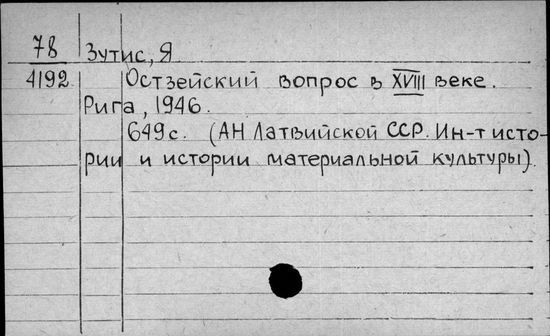 78 Зутис, Я
4192 Остзейский вопрос в XVIII веке.
Рига, 1946.
649с. (АН Латвийской ССР. Ин-т исто-
рии и истории материальной культуры).